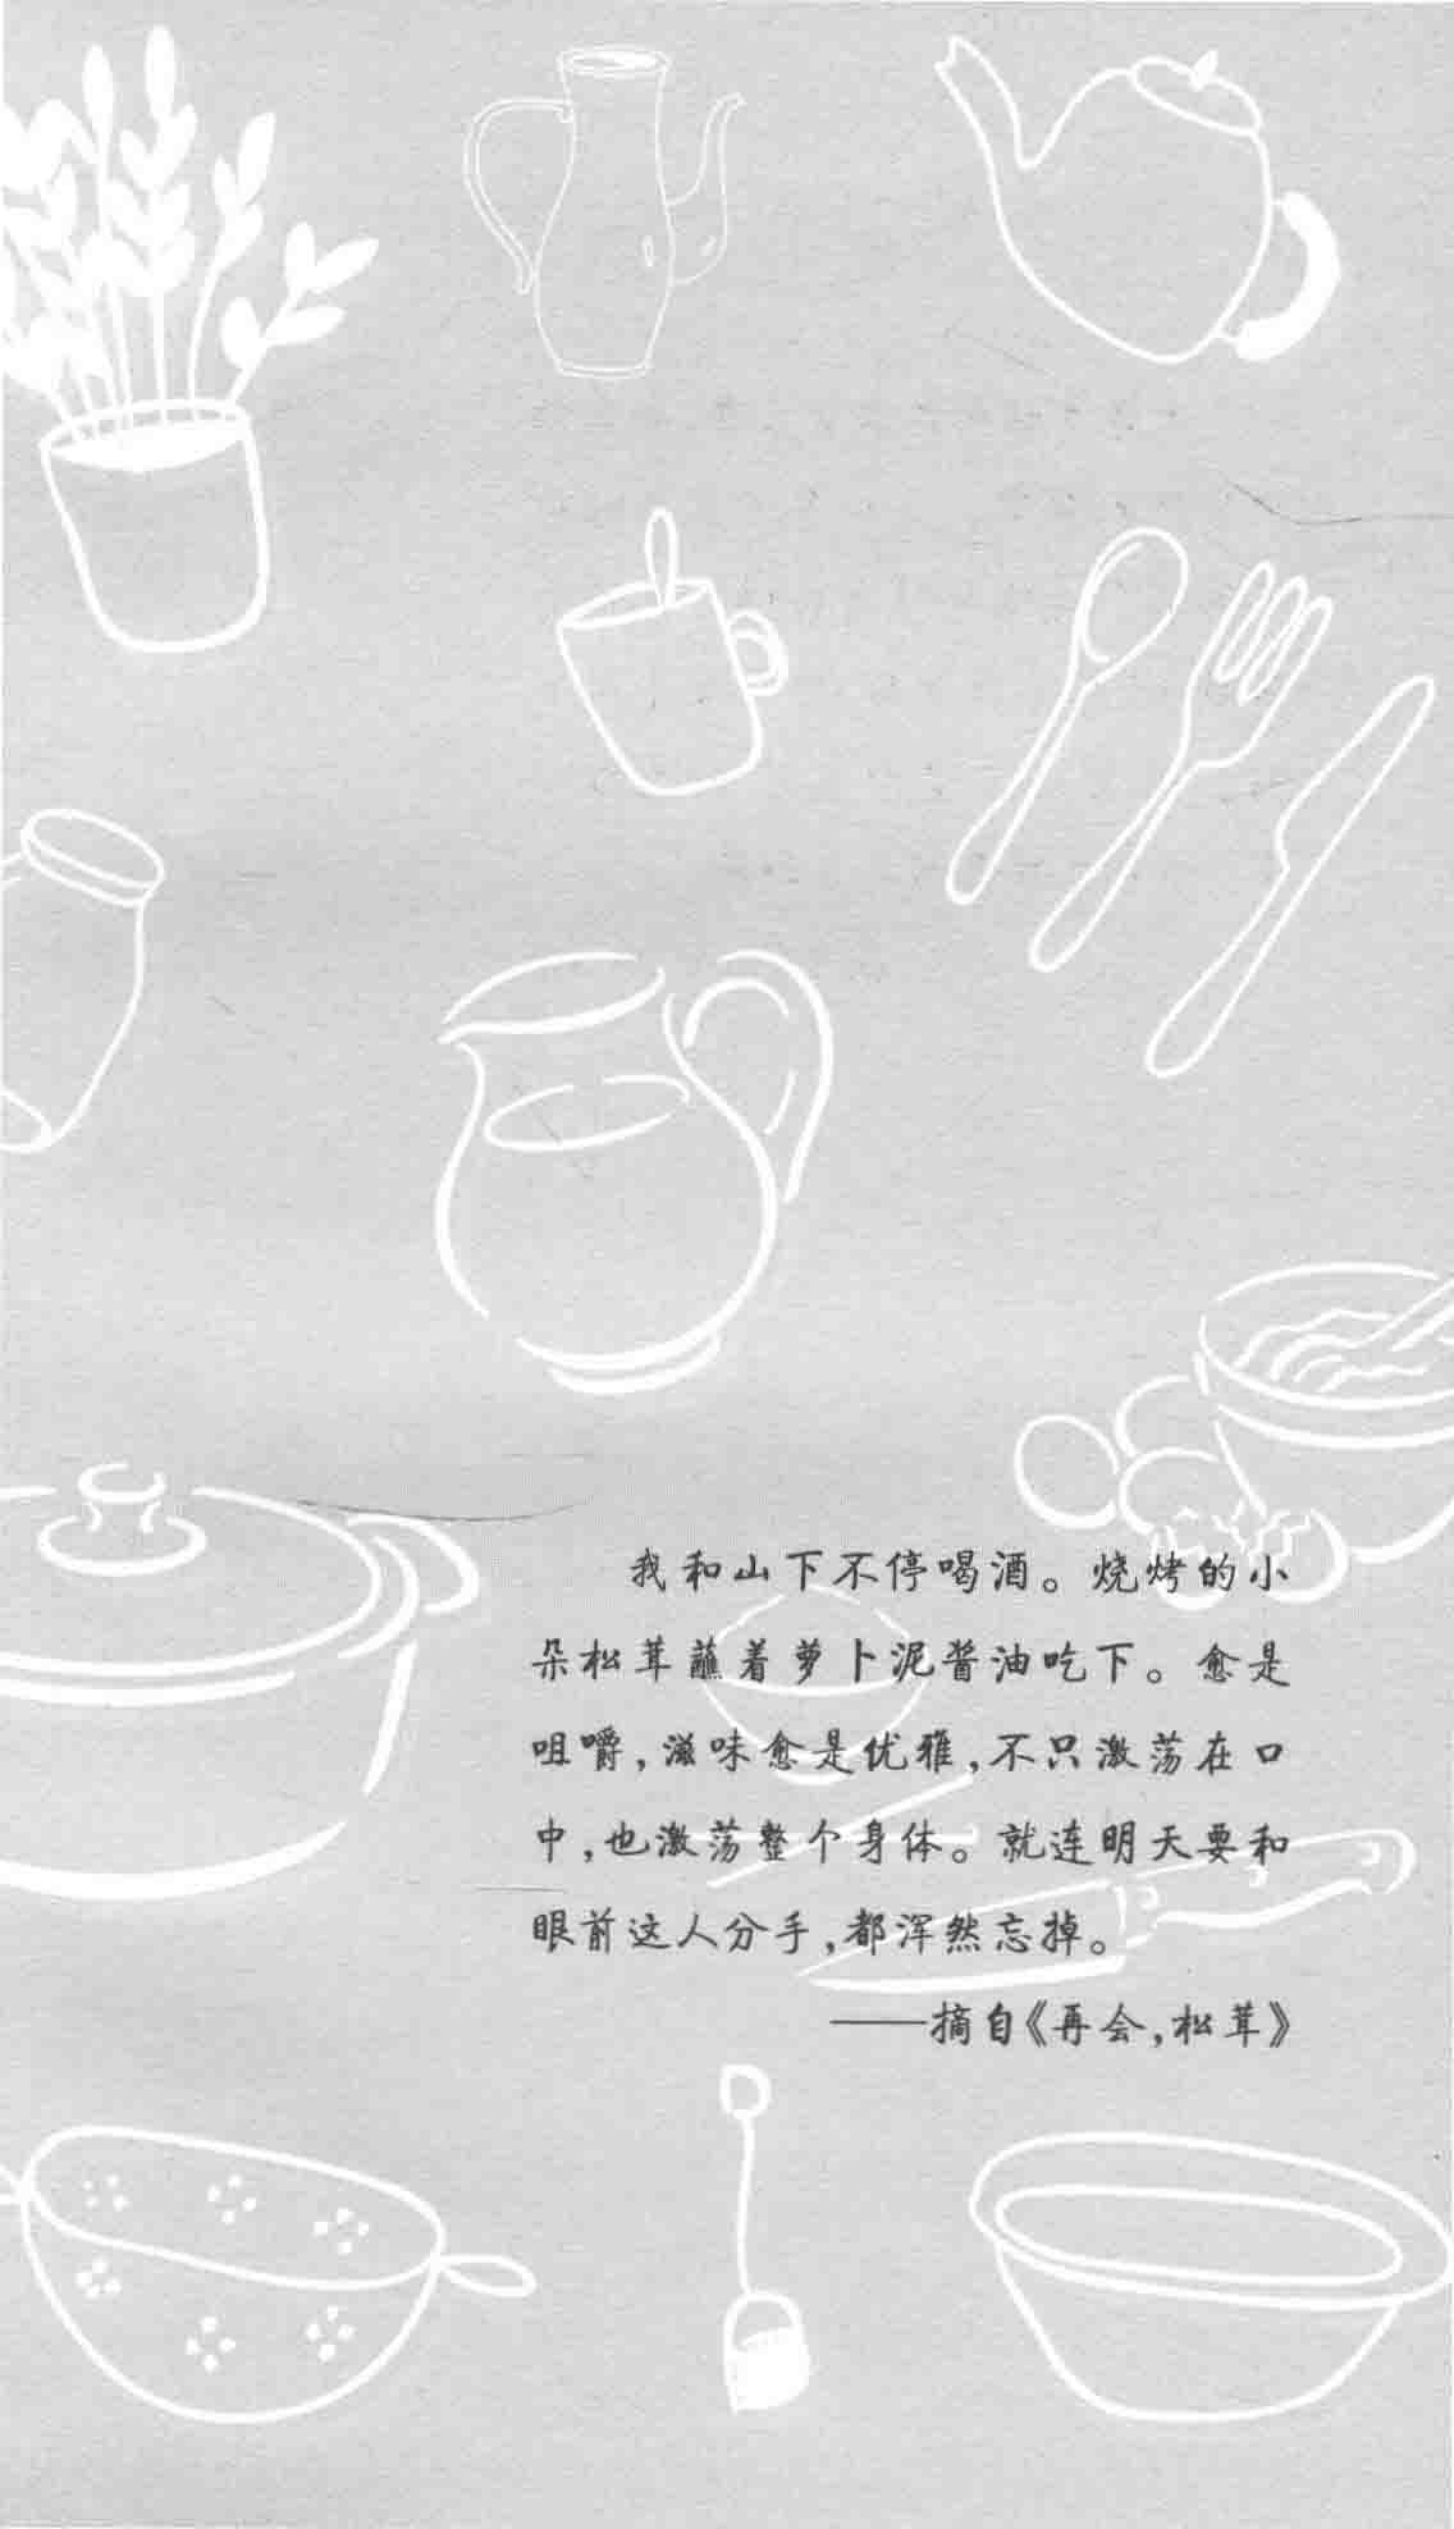 我和山下不停喝酒。烧烤的小
朵松茸蘸着萝卜泥酱油吃下。愈是
咀嚼,滋味愈是优雅,不只激荡在口
中,也激荡整个身体。就连明天要和
眼前这人分手,都浑然忘掉。
——摘自《再会,松茸》